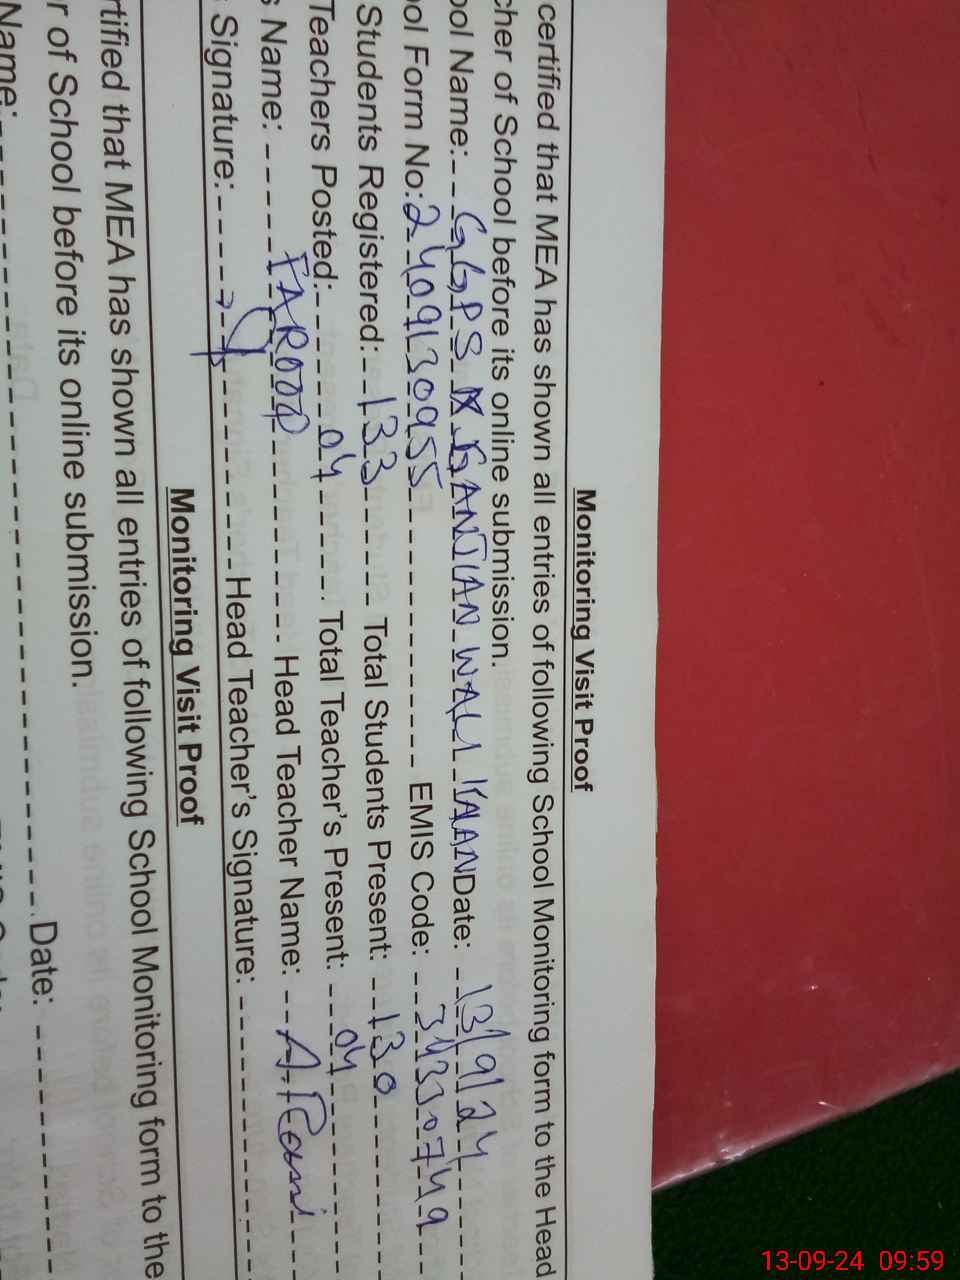 Monitoring Visit Proof
certified that MEA has shown all entries of following School Monitoring form to the Head
cher of School before its online submission.
ool Name: GGPS WALI Date: 13/9/24
ool Form No: 2409130955 EMIS Code: 34330749
Students Registered: 133 Total Students Present: 130
Teachers Posted: 04 Total Teacher's Present: 04
s Name: FAROOQ Head Teacher Name:
Signature: Head Teacher's Signature:
Monitoring Visit Proof
rtified that MEA has shown all entries of following School Monitoring form to the
r of School before its online submission.
Name: Date:
13-09-24 09:59